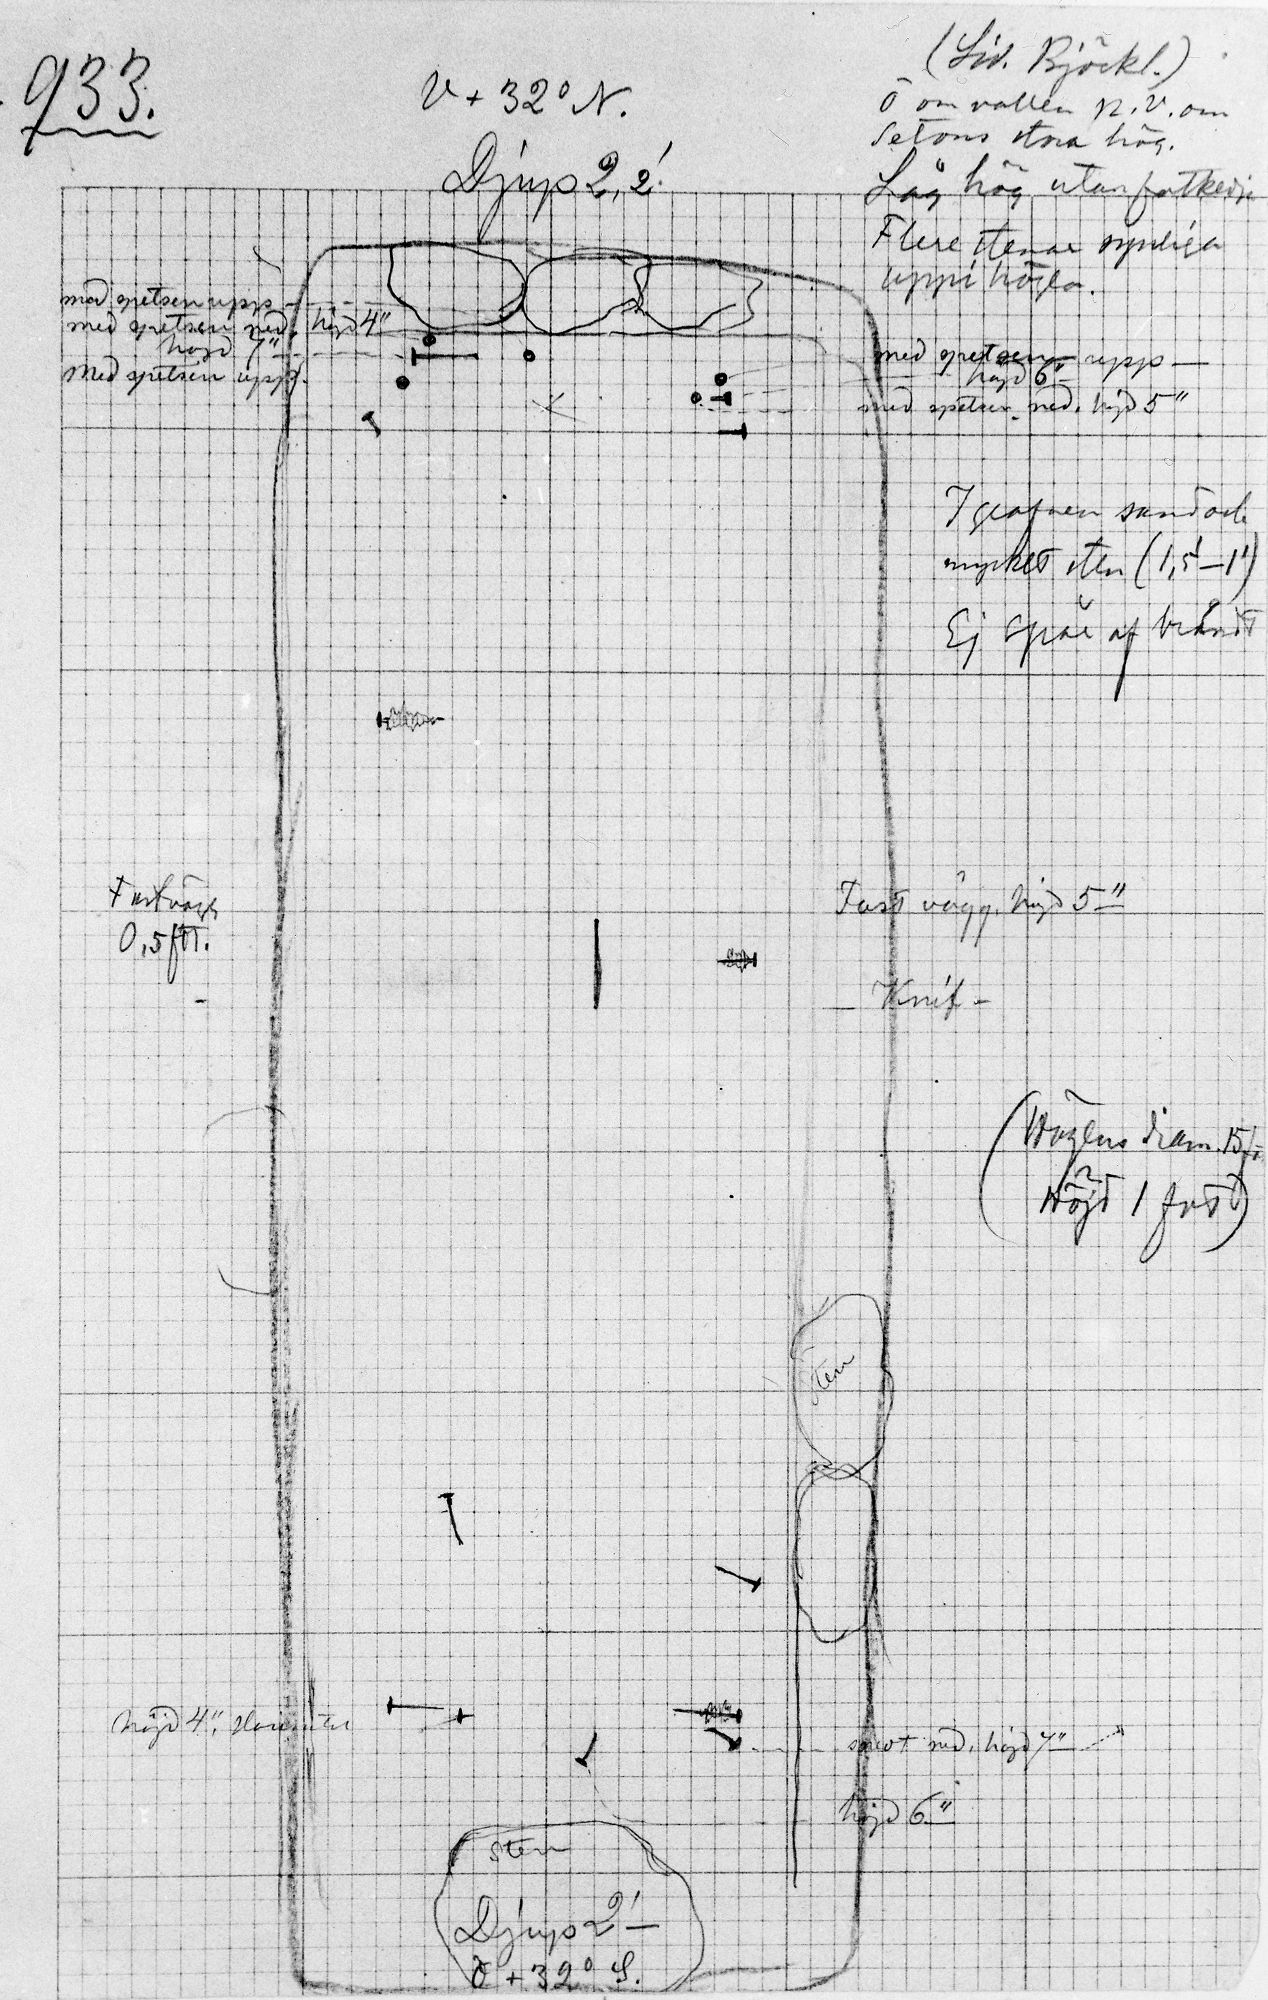 933.
V + 32° N.
Djup 2,2'
(Lid. Björkl.)
Ö om vallen n.v. om
Setons stora hög.
Låg hög utan fotkedja
Flere stenar synliga
uppi högen.
med spetsen upp
med spetsen ned. höjd 4"
höjd 7"
Med spetsen upp.
med spetsen upp
höjd 6"
med spetsen ned. höjd 5"
I grafven sand och
mycket sten (1,5'–1')
Ej spår af brändt
Fast vägg
0,5 fot.
Fast vägg. höjd 5"
Knif
(Högens diam. 15 fot
Höjd 1 fot)
Sten
höjd 4",
snedt ned. höjd 7"
höjd 6"
Sten
Djup 2'
Ö + 32° S.